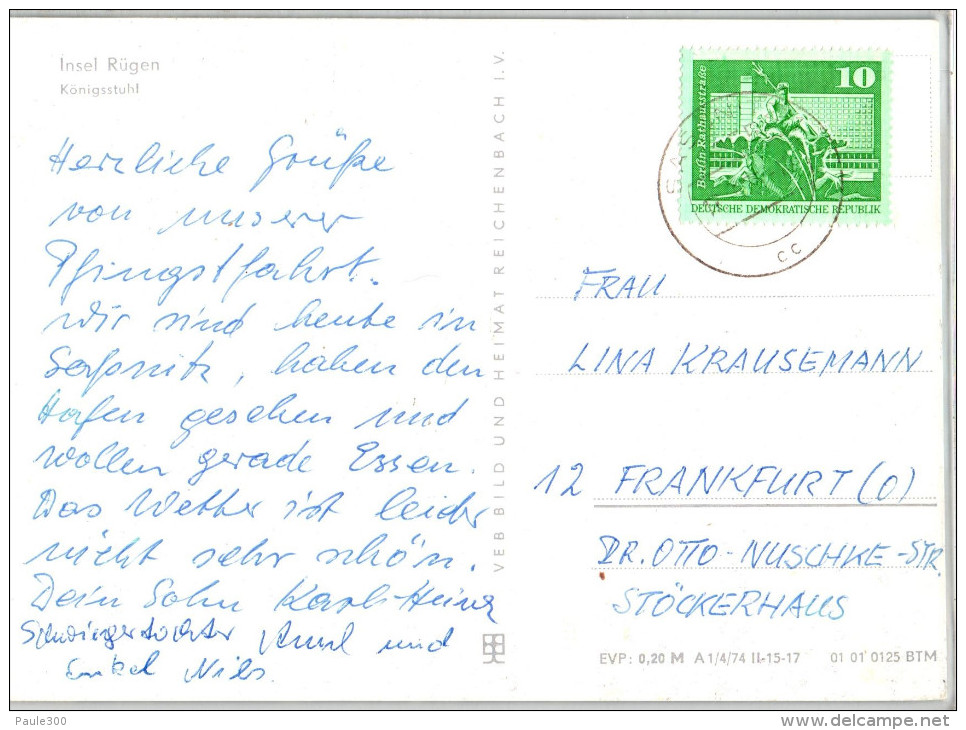 Insel Rügen
Königsstuhl
Herzliche Grüße
von unserer
Pfingstfahrt.
Wir sind heute in
Saßnitz, haben den
Hafen gesehen und
wollen gerade Essen.
Das Wetter ist leider
nicht sehr schön.
Dein Sohn Karl-Heinz
Schwiegertochter und
Enkel Nils.
VEB BILD UND HEIMAT REICHENBACH I.V.
10
Berlin Rathausstraße
DEUTSCHE DEMOKRATISCHE REPUBLIK
SAS
cc
FRAU
LINA KRAUSEMANN
12 FRANKFURT (O)
DR. OTTO-NUSCHKE-STR.
STÖCKERHAUS
EVP: 0,20 M A 1/4/74 II-15-17 01 01 0125 BTM
Paule300
www.delcampe.net